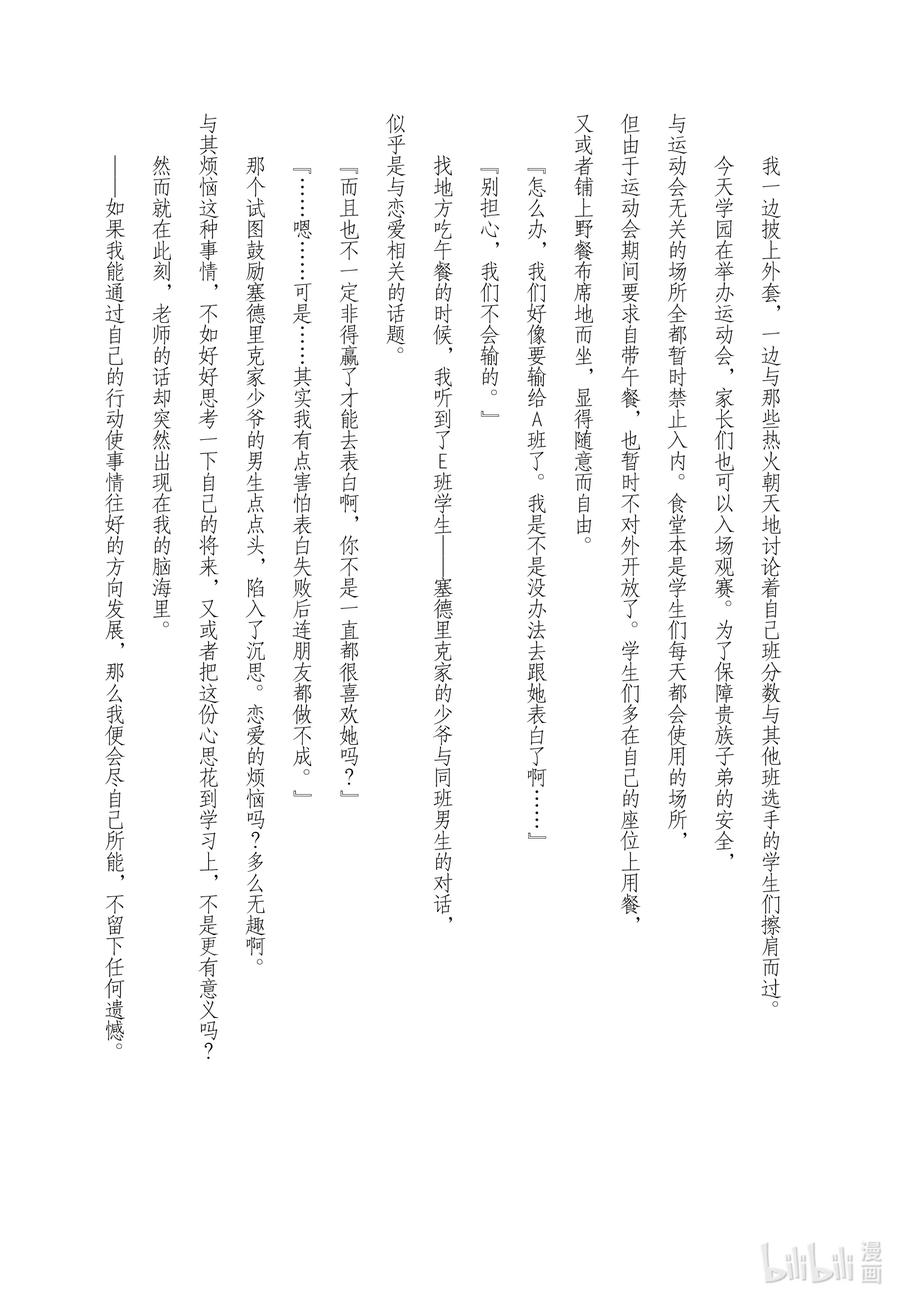 我一边披上外套，一边与那些热火朝天地讨论着自己班分数与其他班选手的学生们擦肩而过。
今天学园在举办运动会，家长们也可以入场观赛。为了保障贵族子弟的安全，
与运动会无关的场所全都暂时禁止入内。食堂本是学生们每天都会使用的场所，
但由于运动会期间要求自带午餐，也暂时不对外开放了。学生们多在自己的座位上用餐，
又或者铺上野餐布席地而坐，显得随意而自由。
『怎么办，我们好像要输给A班了。我是不是没办法去跟她表白了啊……』
『别担心，我们不会输的。』
找地方吃午餐的时候，我听到了E班学生——塞德里克家的少爷与同班男生的对话，
似乎是与恋爱相关的话题。
『而且也不一定非得赢了才能去表白啊，你不是一直都很喜欢她吗？』
『……嗯……可是……其实我有点害怕表白失败后连朋友都做不成。』
那个试图鼓励塞德里克家少爷的男生点点头，陷入了沉思。恋爱的烦恼吗？多么无趣啊。
与其烦恼这种事情，不如好好思考一下自己的将来，又或者把这份心思花到学习上，不是更有意义吗？
然而就在此刻，老师的话却突然出现在我的脑海里。
——如果我能通过自己的行动使事情往好的方向发展，那么我便会尽自己所能，不留下任何遗憾。
bilibili 漫画